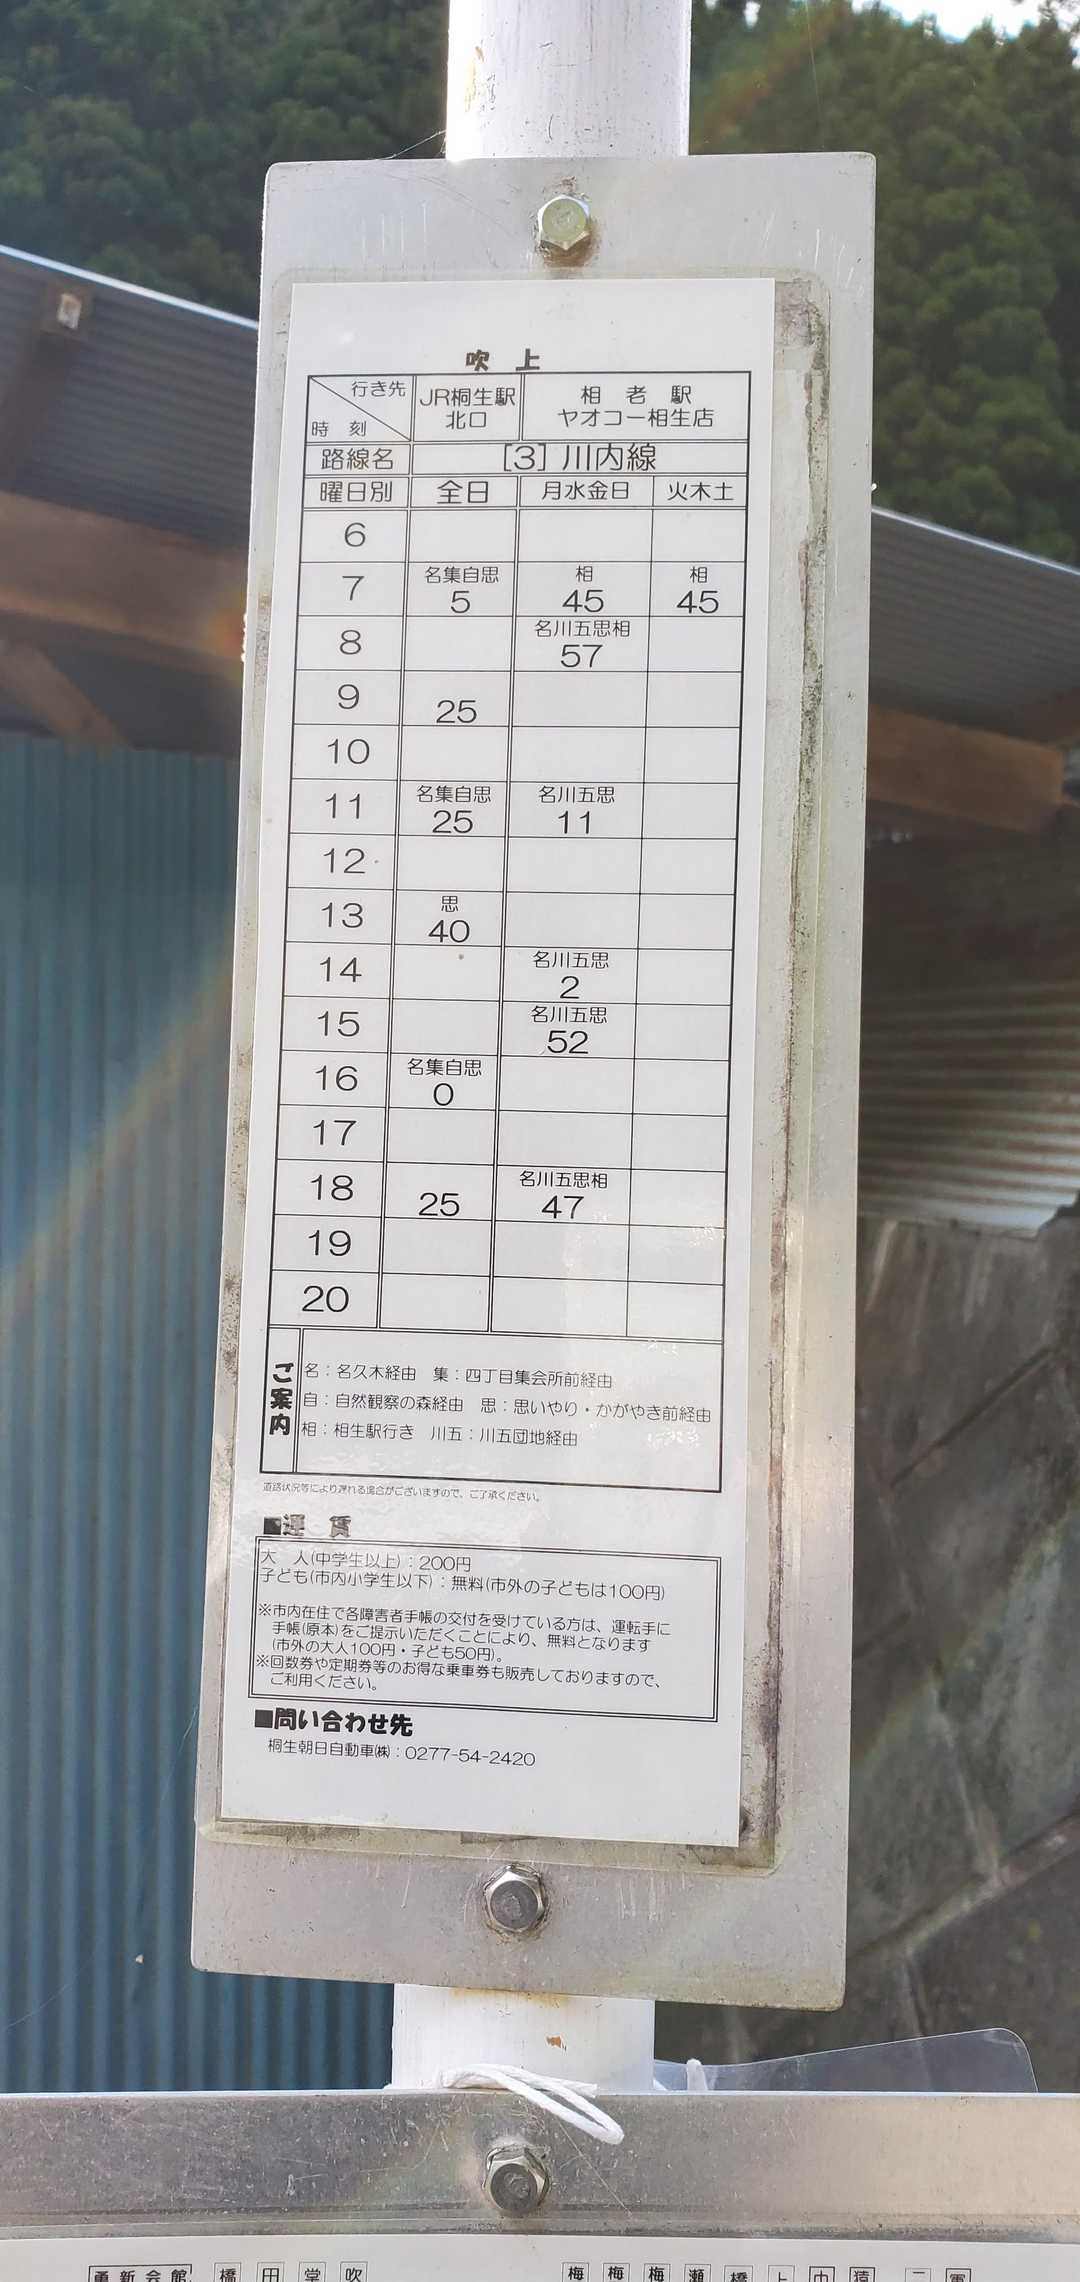 吹 上
行き先
時 刻
JR桐生駅
北口
相 老 駅
ヤオコー相生店
路線名 [3] 川内線
曜日別 全日 月水金日 火木土
6
名集自思 相 相
7 5 45 45
名川五思相
8 57
9 25
10
名集自思 名川五思
11 25 11
12
思
13 40
名川五思
14 2
名川五思
15 52
名集自思
16 0
17
名川五思相
18 25 47
19
20
ご案内
名：名久木経由 集：四丁目集会所前経由
自：自然観察の森経由 思：思いやり・かがやき前経由
相：相生駅行き 川五：川五団地経由
道路状況等により遅れる場合がございますので、ご了承ください。
■運 賃
大 人(中学生以上)：200円
子ども(市内小学生以下)：無料(市外の子どもは100円)
※市内在住で各障害者手帳の交付を受けている方は、運転手に
手帳(原本)をご提示いただくことにより、無料となります
(市外の大人100円・子ども50円)。
※回数券や定期券等のお得な乗車券も販売しておりますので、
ご利用ください。
■問い合わせ先
桐生朝日自動車㈱：0277-54-2420
新会館 橋 田 堂 吹 梅 梅 梅 瀬 橋 上 中 猿